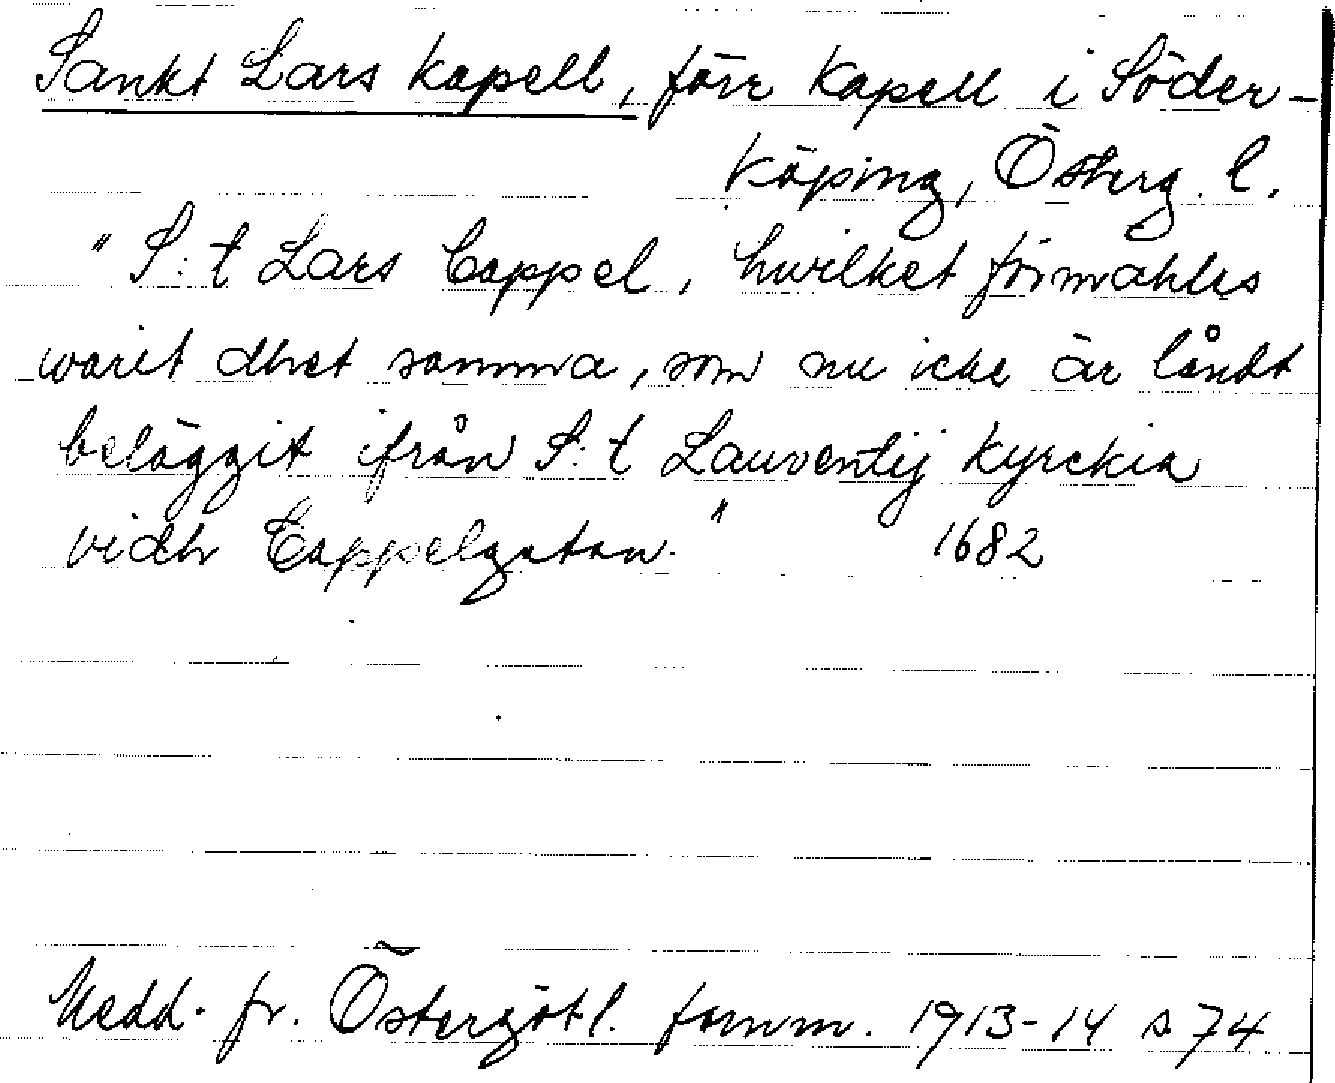 Sankt Lars kapell, förr kapell i Söder-
köping, Österg. l.
"S:t Lars Cappel, hwilket förmähles
warit dhet samma, som nu icke är långt
beläggit ifrån S:t Laurentij Kyrckia
vidh Cappelgatan." 1682
Medd. fr. Östergötl. fornm. 1913-14 s 74